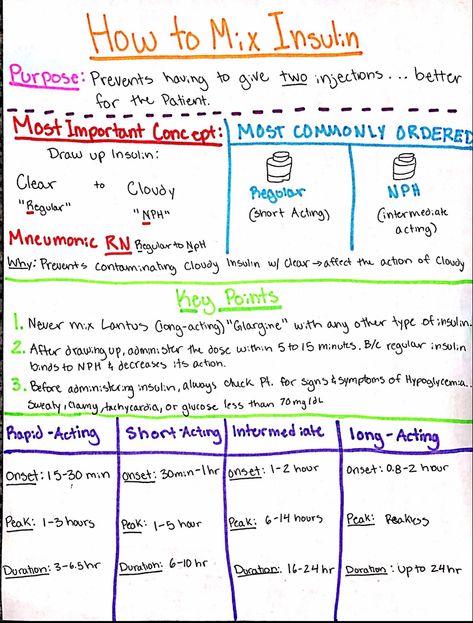 How to Mix Insulin
Purpose: Prevents having to give two injections... better
for the Patient.
Most Important Concept:
Draw up Insulin:
Clear to Cloudy
"Regular" "NPH"
Mneumonic RN Regular to NPH
MOST COMMONLY ORDERED
Regular
(short Acting)
NPH
(intermediate
acting)
Why: Prevents contaminating Cloudy Insulin w/ Clear → affect the action of Cloudy
Key Points
1. Never mix Lantus (long-acting) "Glargine" with any other type of insulin.
2. After drawing up, administer the dose within 5 to 15 minutes. B/c regular insulin
binds to NPH & decreases its action.
3. Before administering insulin, always check Pt. for signs & symptoms of Hypoglycemia.
Sweaty, clamy, tachycardia, or glucose less than 70 mg/dL
Rapid-Acting
Onset: 15-30 min
Peak: 1-3 hours
Duration: 3-6.5hr
Short-Acting
onset: 30min-1hr
Peak: 1-5 hour
Duration: 6-10 hr
Intermediate
onset: 1-2 hour
Peak: 6-14 hours
Duration: 16-24 hr
long-Acting
Onset: 0.8-2 hour
Peak: Peakless
Duration: up to 24 hr